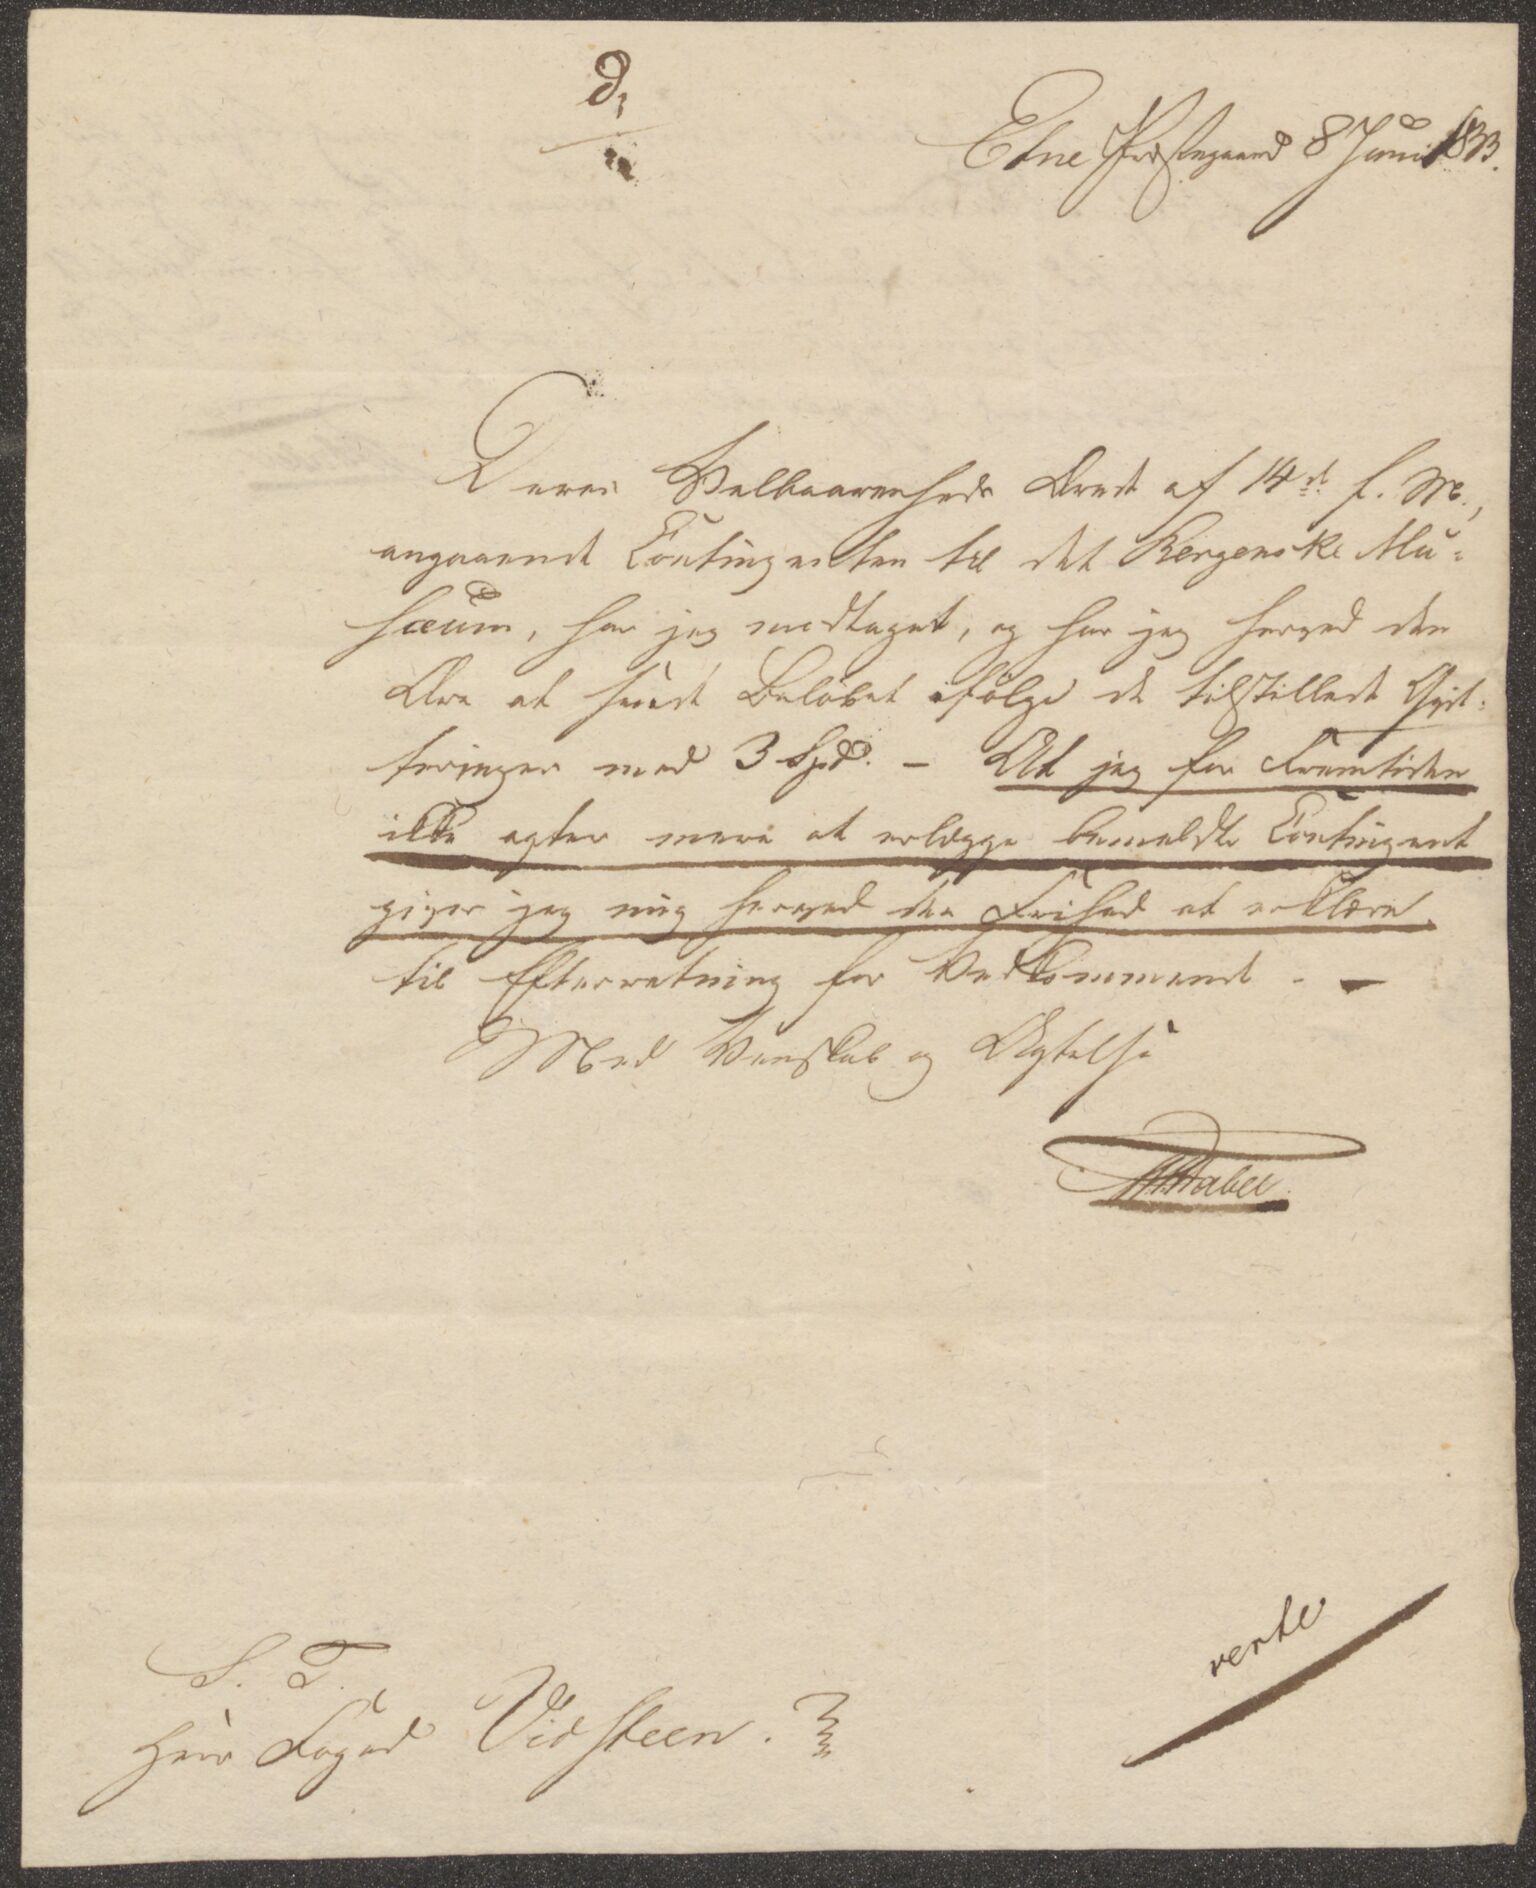 d,
Etne Præstegaard 8 Juni 1833.
Deres Velbaarenheds Ærede af 14de f. M.,
angaaende Contingenten til det Bergenske Mu-
sæum, har jeg modtaget, og har jeg herved den
Ære at sende Beløbet ifølge de tilstillede Qvit-
teringer med 3 Spd. – At jeg for Fremtiden
ikke agter mere at erlægge bemeldte Contingent
giver jeg mig herved den Frihed at erklære
til Efterretning for Vedkommende. –
Med Venskab og Agtelse
S. T.
Herr Foged Vidsteen.
verte